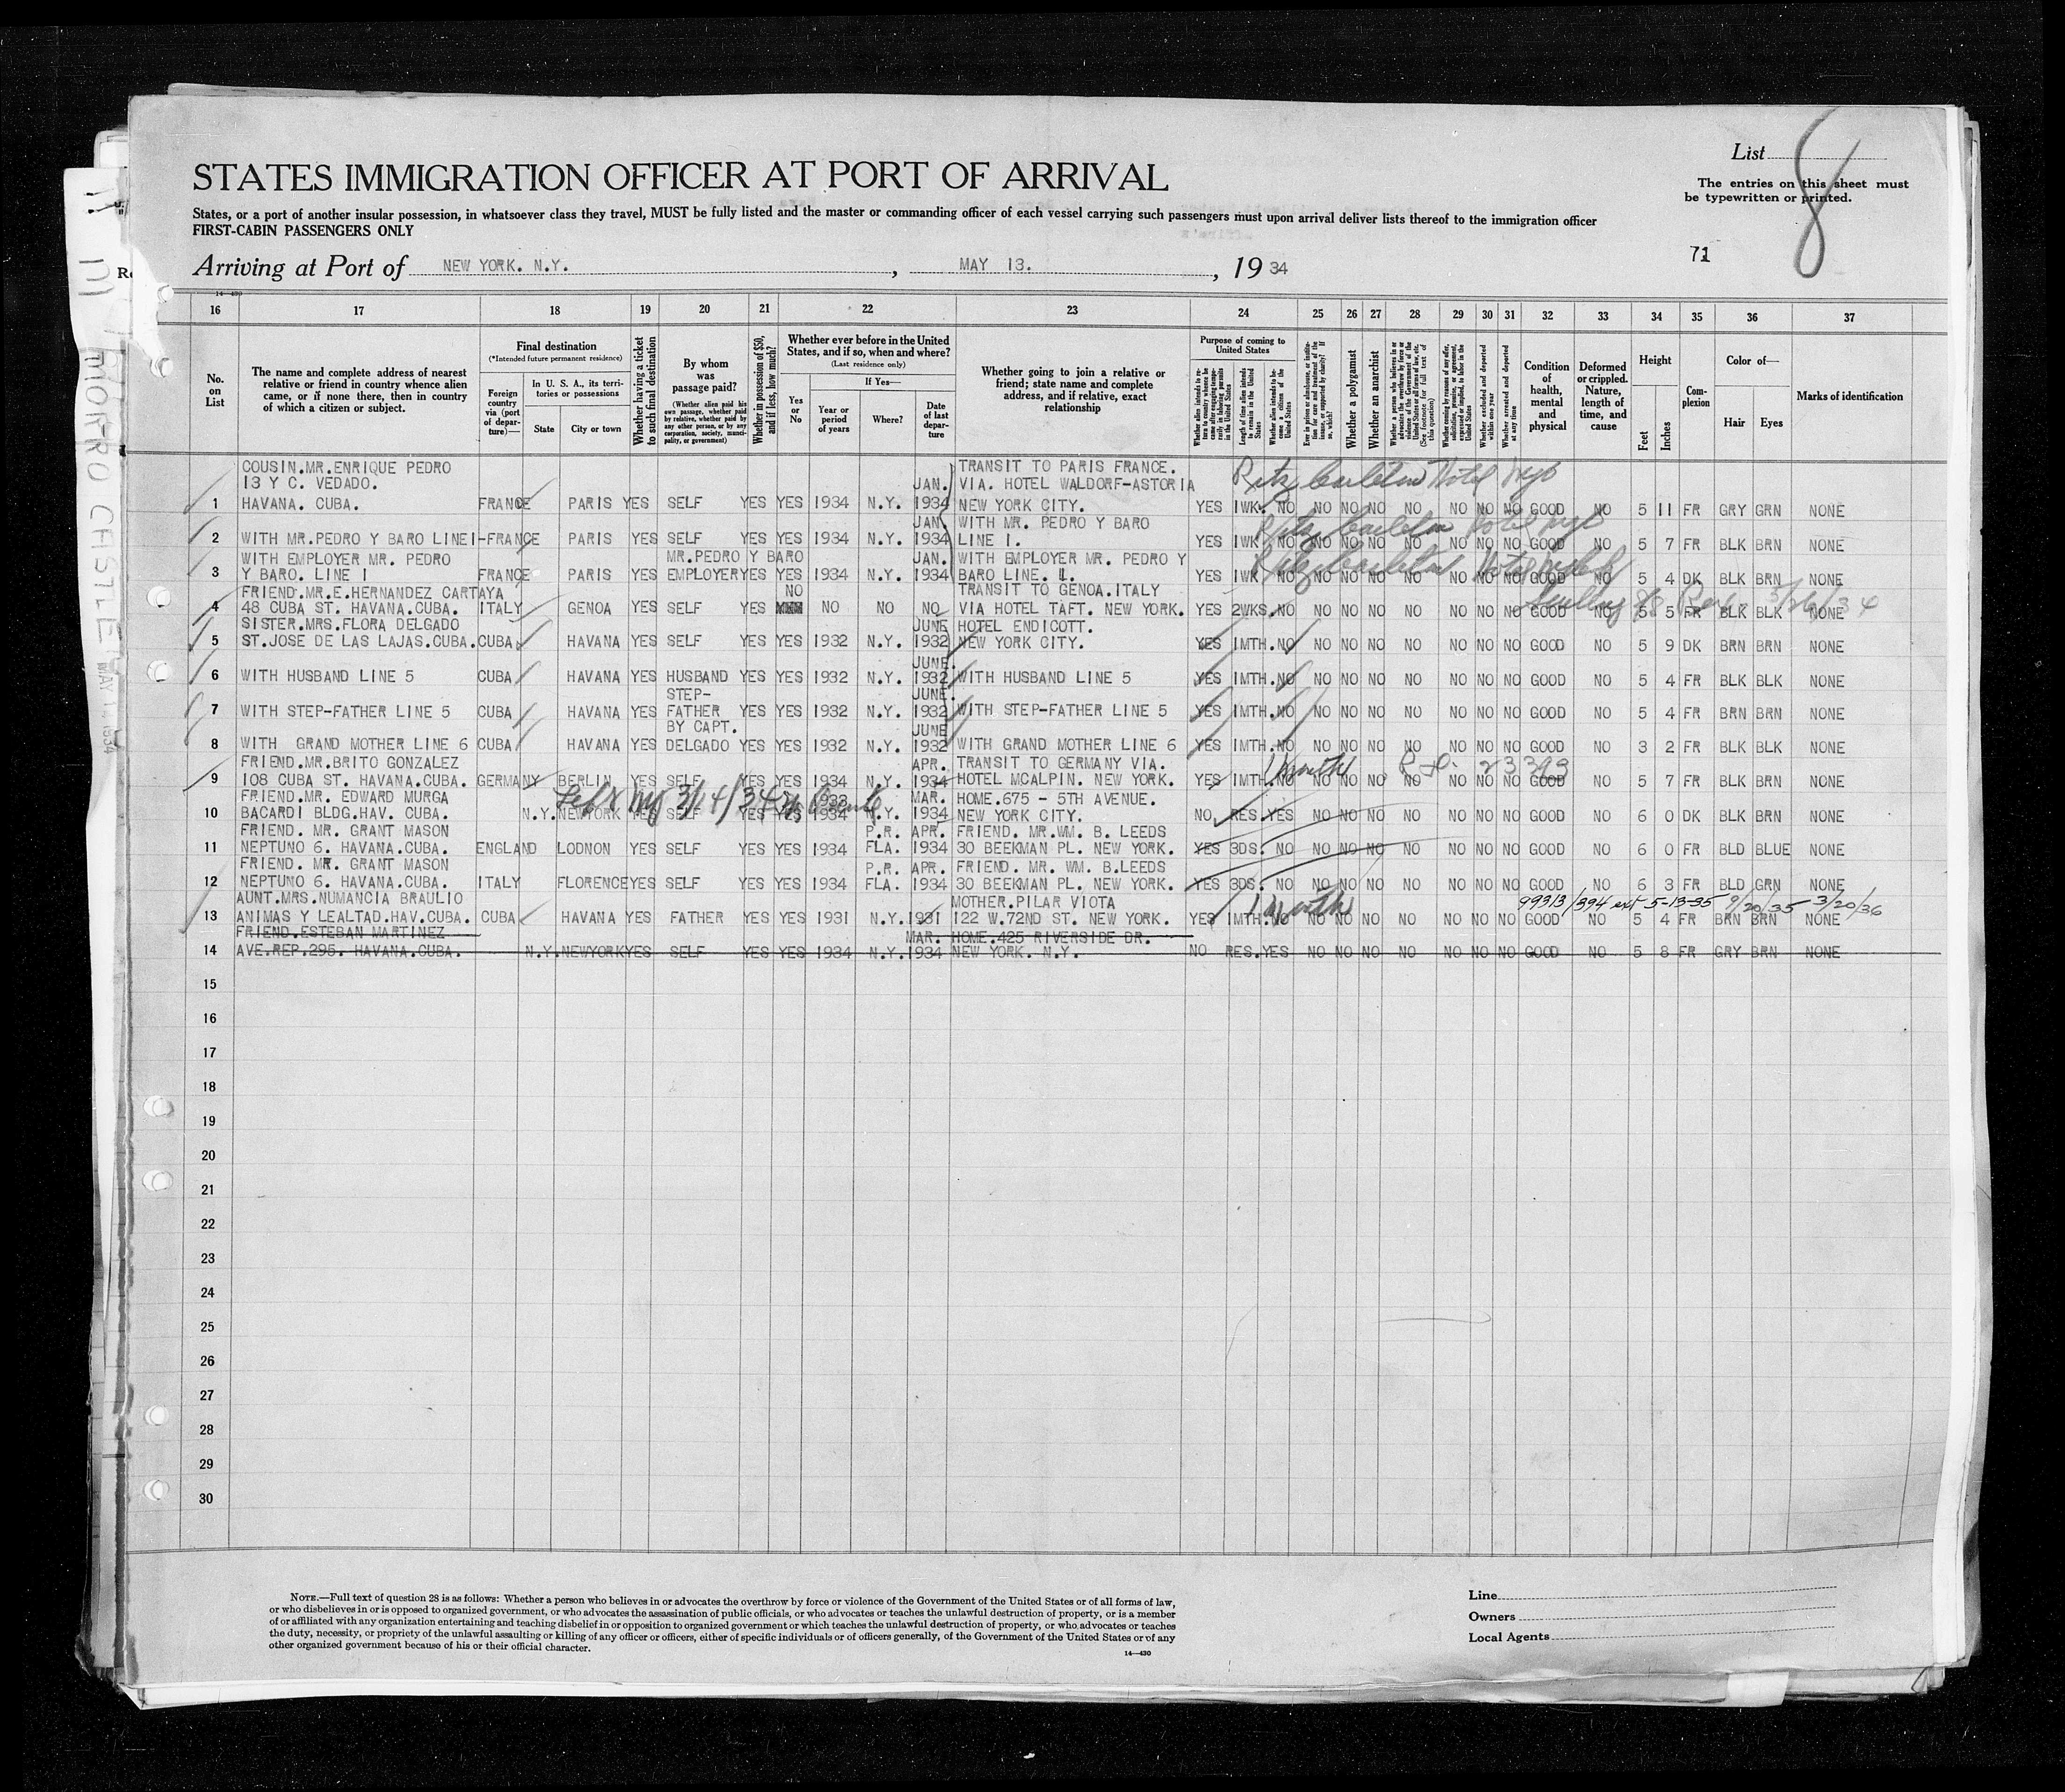 List 8
STATES IMMIGRATION OFFICER AT PORT OF ARRIVAL
The entries on this sheet must
be typewritten or printed.
States, or a port of another insular possession, in whatsoever class they travel, MUST be fully listed and the master or commanding officer of each vessel carrying such passengers must upon arrival deliver lists thereof to the immigration officer
FIRST-CABIN PASSENGERS ONLY
71
Arriving at Port of NEW YORK. N.Y. , MAY 13. , 19 34
MORRO CASTLE MAY 14 1934
14—430
16 17 18 19 20 21 22 23 24 25 26 27 28 29 30 31 32 33 34 35 36 37
No. on List
The name and complete address of nearest relative or friend in country whence alien came, or if none there, then in country of which a citizen or subject.
Final destination
(*Intended future permanent residence)
Foreign country via (port of departure)—
In U. S. A., its territories or possessions
State
City or town
Whether having a ticket to such final destination
By whom was passage paid?
(Whether alien paid his own passage, whether paid by any other person, or by any corporation, society, municipality, or government)
Whether in possession of $50, and if less, how much?
Whether ever before in the United States, and if so, when and where?
(Last residence only)
Yes or No
If Yes—
Year or period of years
Where?
Date of last departure
Whether going to join a relative or friend; state name and complete address, and if relative, exact relationship
Purpose of coming to United States
Length of time alien intends to remain in the United States
Whether alien intends to become a citizen of the United States
Whether a polygamist
Whether an anarchist
(See footnote for full text of this question)
Whether excluded and deported within one year
Whether arrested and deported at any time
Condition of health, mental and physical
Deformed or crippled. Nature, length of time, and cause
Height
Feet
Inches
Complexion
Color of—
Hair
Eyes
Marks of identification
COUSIN.MR.ENRIQUE PEDRO TRANSIT TO PARIS FRANCE.
13 Y C. VEDADO. JAN. VIA. HOTEL WALDORF-ASTORIA Ritz Carleton Hotel NYC
1 HAVANA. CUBA. FRANCE PARIS YES SELF YES YES 1934 N.Y. 1934 NEW YORK CITY. YES 1WK. NO NO NO NO NO NO NO NO GOOD NO 5 11 FR GRY GRN NONE
JAN. WITH MR. PEDRO Y BARO Ritz Carleton Hotel NYC
2 WITH MR.PEDRO Y BARO LINE1-FRANCE PARIS YES SELF YES YES 1934 N.Y. 1934 LINE 1. YES 1WK NO NO NO NO NO NO NO NO GOOD NO 5 7 FR BLK BRN NONE
WITH EMPLOYER MR. PEDRO MR.PEDRO Y BARO JAN. WITH EMPLOYER MR. PEDRO Y Ritz Carleton Hotel
3 Y BARO. LINE 1 FRANCE PARIS YES EMPLOYER YES YES 1934 N.Y. 1934 BARO LINE. 1. YES 1WK NO NO NO NO NO NO NO NO GOOD NO 5 4 DK BLK BRN NONE
FRIEND.MR.E.HERNANDEZ CARTAYA NO TRANSIT TO GENOA.ITALY 3/26/34
4 48 CUBA ST. HAVANA.CUBA. ITALY GENOA YES SELF YES NO NO NO VIA HOTEL TAFT. NEW YORK. YES 2WKS.NO NO NO NO NO NO NO NO GOOD NO 5 5 FR BLK BLK NONE
SISTER.MRS.FLORA DELGADO JUNE HOTEL ENDICOTT.
5 ST.JOSE DE LAS LAJAS.CUBA.CUBA. HAVANA YES SELF YES YES 1932 N.Y. 1932 NEW YORK CITY. YES 1MTH.NO NO NO NO NO NO NO NO GOOD NO 5 9 DK BRN BRN NONE
JUNE.
6 WITH HUSBAND LINE 5 CUBA HAVANA YES HUSBAND YES YES 1932 N.Y. 1932 WITH HUSBAND LINE 5 YES 1MTH.NO NO NO NO NO NO NO NO GOOD NO 5 4 FR BLK BLK NONE
STEP- JUNE.
7 WITH STEP-FATHER LINE 5 CUBA HAVANA YES FATHER YES YES 1932 N.Y. 1932 WITH STEP-FATHER LINE 5 YES 1MTH.NO NO NO NO NO NO NO NO GOOD NO 5 4 FR BRN BRN NONE
BY CAPT. JUNE
8 WITH GRAND MOTHER LINE 6 CUBA HAVANA YES DELGADO YES YES 1932 N.Y. 1932 WITH GRAND MOTHER LINE 6 YES 1MTH.NO NO NO NO NO NO NO NO GOOD NO 3 2 FR BLK BLK NONE
FRIEND.MR.BRITO GONZALEZ APR. TRANSIT TO GERMANY VIA. 1 month
9 108 CUBA ST. HAVANA.CUBA. GERMANY BERLIN YES SELF YES YES 1934 N.Y. 1934 HOTEL MCALPIN. NEW YORK. YES 1MTH.NO NO NO NO NO NO NO NO GOOD NO 5 7 FR BLK BRN NONE
FRIEND.MR. EDWARD MURGA 3/14/34 MAR. HOME.675 - 5TH AVENUE.
10 BACARDI BLDG.HAV. CUBA. N.Y.NEWYORK YES SELF YES YES 1934 N.Y. 1934 NEW YORK CITY. NO RES.YES NO NO NO NO NO NO NO GOOD NO 6 0 DK BLK BRN NONE
FRIEND. MR. GRANT MASON P.R. APR. FRIEND. MR.WM. B. LEEDS
11 NEPTUNO 6. HAVANA.CUBA. ENGLAND LODNON YES SELF YES YES 1934 FLA. 1934 30 BEEKMAN PL. NEW YORK. YES 3DS. NO NO NO NO NO NO NO NO GOOD NO 6 0 FR BLD BLUE NONE
FRIEND. MR. GRANT MASON P.R. APR. FRIEND. MR. WM. B.LEEDS
12 NEPTUNO 6. HAVANA.CUBA. ITALY FLORENCE YES SELF YES YES 1934 FLA. 1934 30 BEEKMAN PL. NEW YORK. YES 3DS. NO NO NO NO NO NO NO NO GOOD NO 6 3 FR BLD GRN NONE
AUNT.MRS.NUMANCIA BRAULIO MOTHER.PILAR VIOTA 1 month 99313/394 ext 5-13-35 9/20/35 - 3/20/36
13 ANIMAS Y LEALTAD.HAV.CUBA. CUBA HAVANA YES FATHER YES YES 1931 N.Y.1931 122 W.72ND ST. NEW YORK. YES 1MTH.NO NO NO NO NO NO NO NO GOOD NO 5 4 FR BRN BRN NONE
FRIEND.ESTEBAN MARTINEZ MAR. HOME.425 RIVERSIDE DR.
14 AVE.REP.295. HAVANA.CUBA. N.Y.NEWYORK YES SELF YES YES 1934 N.Y.1934 NEW YORK. N.Y. NO RES.YES NO NO NO NO NO NO NO GOOD NO 5 8 FR GRY BRN NONE
15
16
17
18
19
20
21
22
23
24
25
26
27
28
29
30
NOTE.—Full text of question 28 is as follows: Whether a person who believes in or advocates the overthrow by force or violence of the Government of the United States or of all forms of law,
or who disbelieves in or is opposed to organized government, or who advocates the assassination of public officials, or who advocates or teaches the unlawful destruction of property, or is a member
of or affiliated with any organization entertaining and teaching disbelief in or opposition to organized government or which teaches the unlawful destruction of property, or who advocates or teaches
the duty, necessity, or propriety of the unlawful assaulting or killing of any officer or officers, either of specific individuals or of officers generally, of the Government of the United States or of any
other organized government because of his or their official character.
14—430
Line
Owners
Local Agents